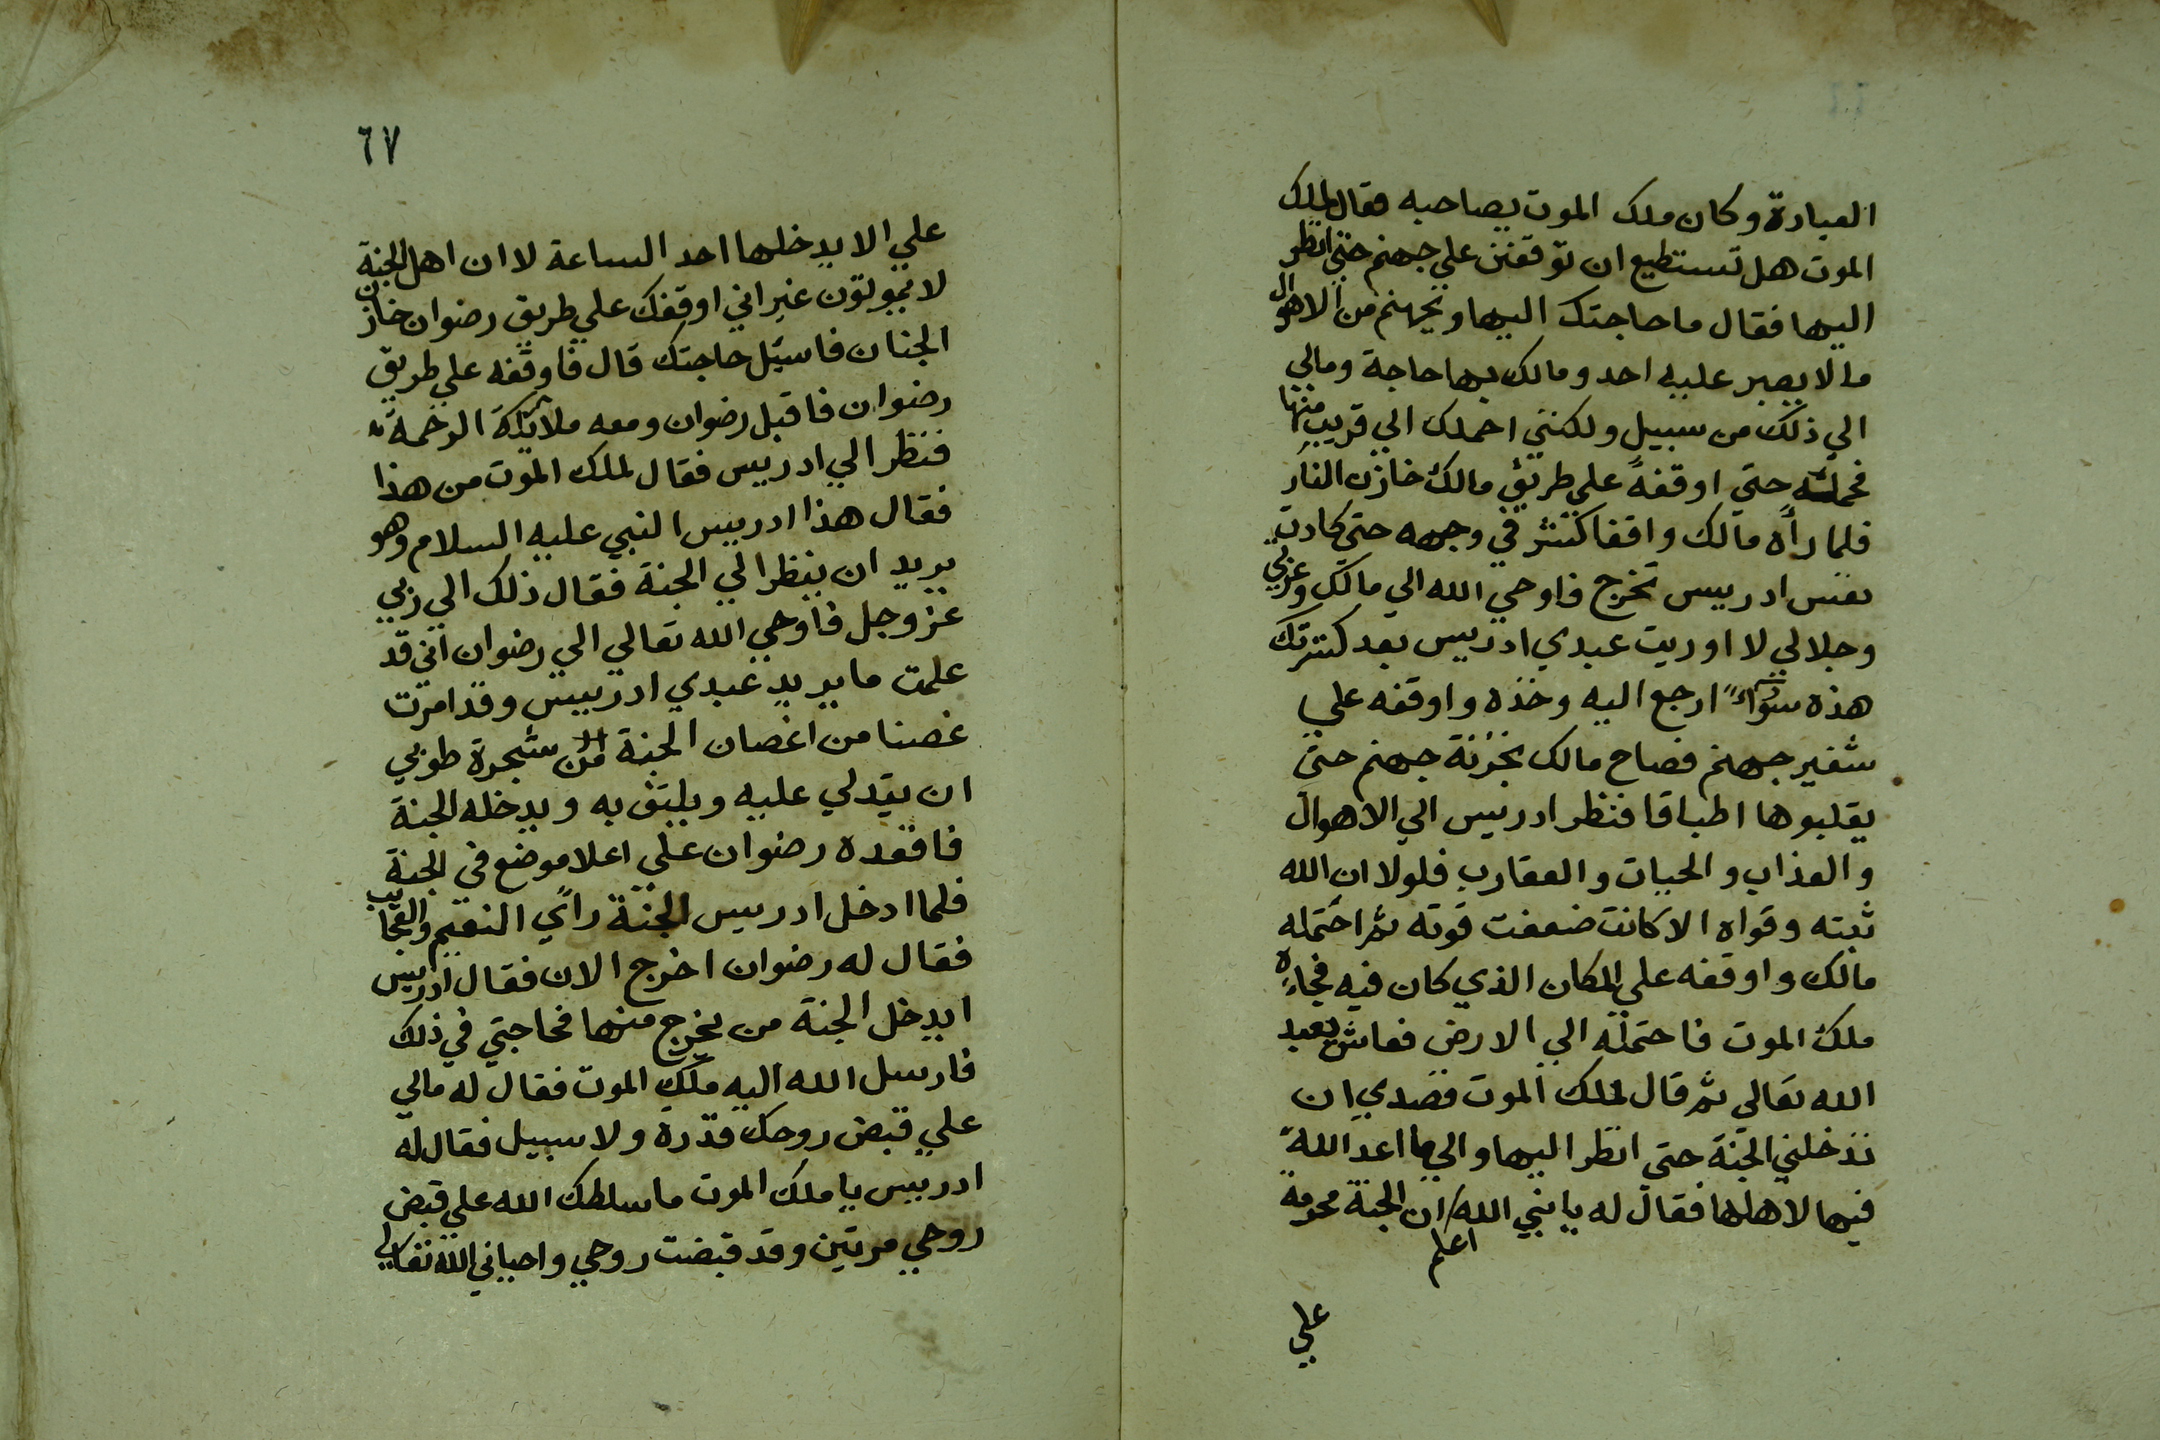 العبادة وكان ملك الموت يصاحبه فقال لملك
الموت هل تستطيع ان توقفني علي جهنم حتي انظر
اليها فقال ما حاجتك اليها وبجهنم من الاهوال
ما لا يصبر عليه احد ومالك بها حاجة ومالي
الي ذلك من سبيل ولكنني احملك الي قريب منها
فحمله حتي اوقفه علي طريق مالك خازن النار
فلما رأه مالك واقفا كشر في وجهه حتي كادت
نفس ادريس تخرج فاوحي الله الي مالك وعزتي
وجلالي لا اوريت عبدي ادريس بعد كشرتك
هذه سوآءً ارجع اليه وخذه واوقفه علي
شفير جهنم فصاح مالك بخزنة جهنم حتي
يقلبوها اطباقا فنظر ادريس الي الاهوال
والعذاب والحيات والعقارب فلولا ان الله
ثبته وقواه الا كانت ضعفت قوته ثم احتمله
مالك واوقفه علي المكان الذي كان فيه فجاءه
ملك الموت فاحتمله الي الارض فعاش يعبد
الله تعالي ثم قال لملك الموت قصدي ان
تدخلني الجنة حتي انظر اليها والي ما اعد الله
فيها لاهلها فقال له يا نبي الله اعلم ان الجنة محرمة
علي
٦٧
علي الا يدخلها احد الساعة لا ان اهل الجنة
لا يموتون غير اني اوقفك علي طريق رضوان خازن
الجنان فاسئل حاجتك قال فاوقفه علي طريق
رضوان فاقبل رضوان ومعه ملائكة الرحمة
فنظر الي ادريس فقال لملك الموت من هذا
فقال هذا ادريس النبي عليه السلام وهو
يريد ان ينظر الي الجنة فقال ذلك الي ربي
عز وجل فاوحي الله تعالي الي رضوان اني قد
علمت ما يريد عبدي ادريس وقد امرت
غصنا من اغصان الجنة من شجرة طوبي
ان يتدلي عليه ويلتف به ويدخله الجنة
فاقعده رضوان علي اعلا موضع في الجنة
فلما ادخل ادريس الجنة رأي النعيم والعجايب
فقال له رضوان اخرج الان فقال ادريس
ايدخل الجنة من يخرج منها فحاجتي في ذلك
فارسل الله اليه ملك الموت فقال له مالي
علي قبض روحك قدرة ولا سبيل فقال له
ادريس يا ملك الموت ما سلطك الله علي قبض
روحي مرتين وقد قبضت روحي واحياني الله تعالي